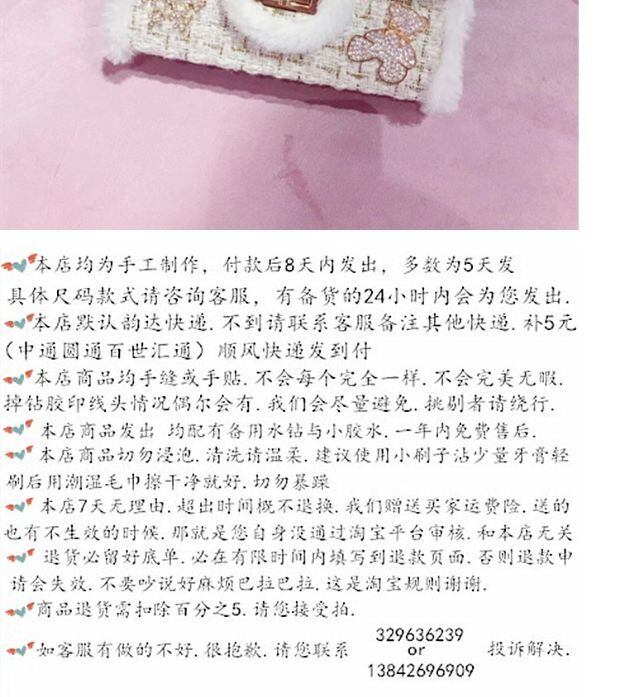 本店均为手工制作，付款后8天内发出，多数为5天发
具体尺码款式请咨询客服，有备货的24小时内会为您发出.
本店默认韵达快递.不到请联系客服备注其他快递.补5元
(中通圆通百世汇通）顺风快递发到付
本店商品均手缝或手贴.不会每个完全一样.不会完美无暇.
掉钻胶印线头情况偶尔会有.我们会尽量避免.挑剔者请绕行.
本店商品发出 均配有备用水钻与小胶水.一年内免费售后.
本店商品切勿浸泡.清洗请温柔.建议使用小刷子沾少量牙膏轻
刷后用潮湿毛巾擦干净就好.切勿暴躁
本店7天无理由.超出时间概不退换.我们赠送买家运费险.送的
也有不生效的时候.那就是您自身没通过淘宝平台审核.和本店无关
退货必留好底单.必在有限时间内填写到退款页面.否则退款申
请会失效.不要吵说好麻烦巴拉巴拉.这是淘宝规则谢谢.
商品退货需扣除百分之5.请您接受拍.
如客服有做的不好.很抱歉.请您联系 329636239 or 13842696909 投诉解决.